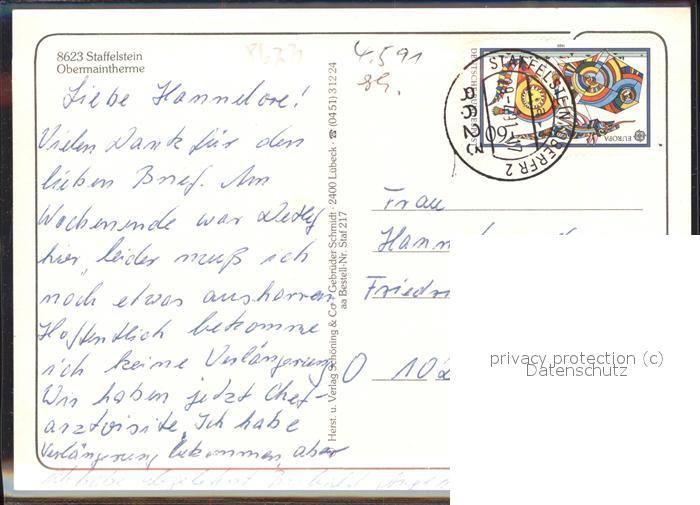 8623 Staffelstein
Obermaintherme
Liebe Hannelore!
Vielen Dank für den
lieben Brief. Am
Wochenende war Detlef
hier, leider muß ich
noch etwas ausharren
Hoffentlich bekomme
ich keine Verlängerung
Wir haben jetzt Chef-
arztvisite, Ich habe
Verlängerung bekommen, aber
ich habe abgelehnt
8623
4.5 91
Herst. u. Verlag Schöning & Co + Gebrüder Schmidt · 2400 Lübeck · ☎ (0451) 31224
aa Bestell-Nr. Staf 217
STAFFELSTEIN, OBERFR 2
8623
DEUTSCHE BUNDESPOST
60
EUROPA
Frau
Hann
Friedr
O 10
privacy protection (c)
Datenschutz